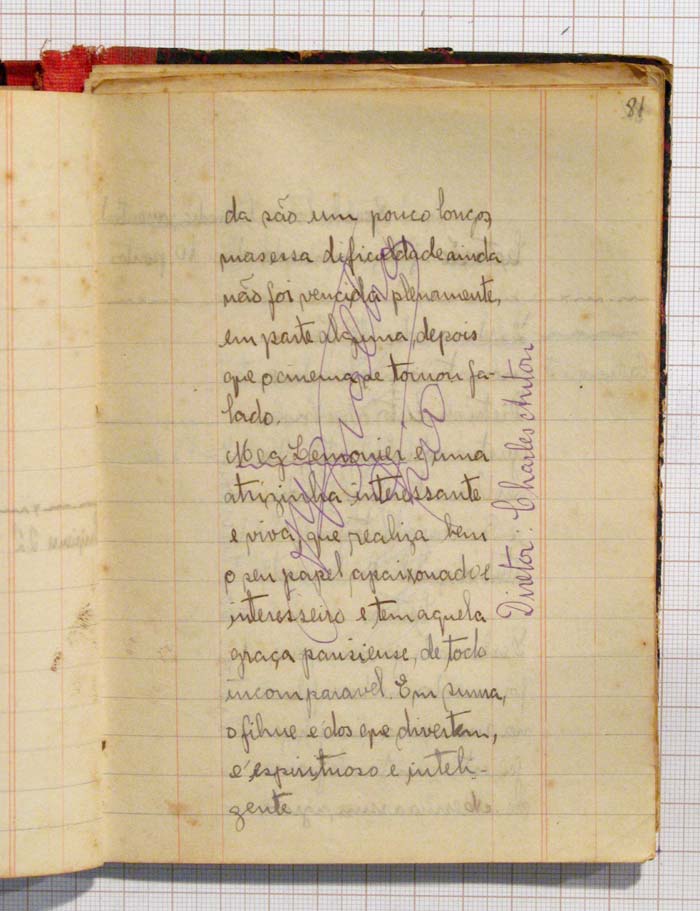 81
da são um pouco longos
mas essa dificuldade ainda
não foi vencida plenamente,
em parte alguma, depois
que o cinema se tornou fa-
lado.
Meg Lemonier é uma
atrizinha interessante
e viva, que realiza bem
o seu papel apaixonado e
interesseiro e tem aquela
graça parisiense, de todo
incomparavel. Em suma,
o filme é dos que divertem,
é espirituoso e inteli-
gente
Diretor: Charles Anton